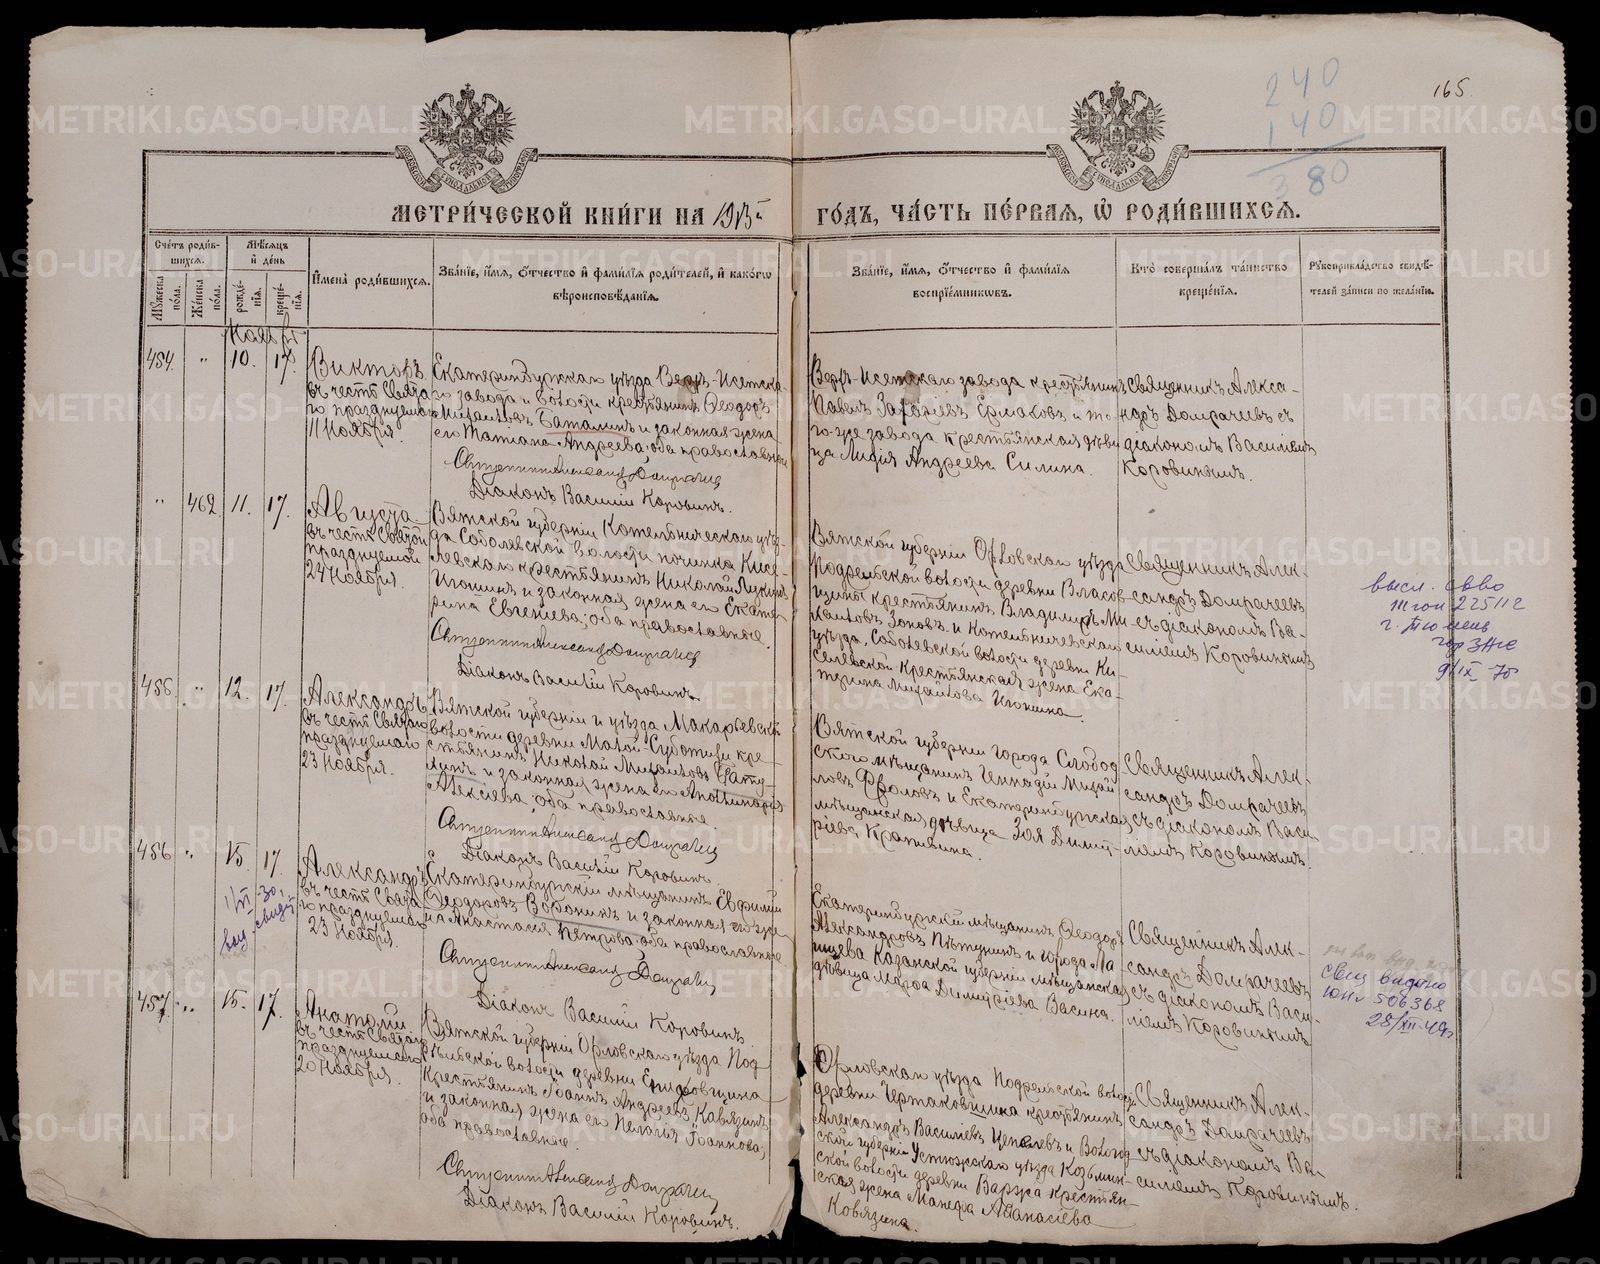 165.
240
140
380
МЕТРИ́ЧЕСКОЙ КНИ́ГИ НА 1913й ГО́ДЪ, ЧА́СТЬ ПЕ́РВАЯ, Ѡ РОДИ́ВШИХСЯ.
Сче́тъ роди́вшихся.
Мꙋ́жеска по́ла.
Же́нска по́ла.
Мѣ́сяцъ и де́нь
рожде́нія.
креще́нія.
И҆мена̀ роди́вшихся.
Зва́ніе, и҆́мя, ѻ҆́тчество и҆ фамилі́я роди́телей, и҆ како́гѡ вѣроисповѣ́данія.
Зва́ніе, и҆́мя, ѻ҆́тчество и҆ фамилі́я воспріе́мникѡвъ.
Кто̀ соверша́лъ та́инство креще́нія.
Рꙋкоприкла́дство свидѣ́телей за́писи по жела́нію.
Ноябрь
454.
"
10.
17.
Викторъ
въ честь Свята-
го празднуемаго
11 Ноября.
Екатеринбургскаго уѣзда Верхъ-Исетска-
го завода и волости крестьянинъ Ѳеодоръ
Михаиловъ Баталинъ и законная жена
его Татіана Андреева, оба православные
Священникъ Александръ Домрачевъ
Діаконъ Василій Коровинъ.
Верхъ-Исетскаго завода крестьянинъ
Павелъ Ермаковъ и то-
го-же завода крестьянская дѣви-
ца Лидія Андреева Силина.
Священникъ Алекса-
ндръ Домрачевъ съ
діакономъ Василіемъ
Коровинымъ.
"
462.
11.
17.
Августа
въ честь Святой
празднуемой
24 Ноября.
Вятской губерніи Котельническаго уѣз-
да Соболевской волости починка Кисе-
левскаго крестьянинъ Николай Лукинъ
Игошинъ и законная жена его Екате-
рина Евгеніева, оба православные.
Священникъ Александръ Домрачевъ
Діаконъ Василій Коровинъ.
Вятской губерніи Орловскаго уѣзда
Подрельской волости деревни Власов-
щины крестьянинъ Владимиръ Ми-
хаиловъ Зоновъ и Котельническаго
уѣзда, Соболевской волости деревни Ки-
селевской крестьянская жена Ека-
терина Михаилова Игошина.
Священникъ Алек-
сандръ Домрачевъ
съ діакономъ Ва-
силіемъ Коровинымъ
высл. св-во
225112
г. Тюмень
гор ЗАГС
9/IX-75
455.
"
12.
17.
Александръ
въ честь Святаго
празднуемаго
23 Ноября.
Вятской губерніи и уѣзда Макарьевской
волости деревни Малой-Субботихи кре-
стьянинъ Николай Михаиловъ
и законная жена его Аполлинарія
Алексіева, оба православные.
Священникъ Александръ Домрачевъ
Діаконъ Василій Коровинъ.
Вятской губерніи города Слобод-
ского мѣщанинъ Геннадій Михаи-
ловъ Фроловъ и Екатеринбургская
мѣщанская дѣвица Зоя Димит-
ріева Крапивина.
Священникъ Алек-
сандръ Домрачевъ
съ діакономъ Васи-
ліемъ Коровинымъ.
456
"
15.
17.
Александръ
въ честь Свята-
го празднуемаго
23 Ноября.
Екатеринбургскій мѣщанинъ Евфимій
Ѳеодоровъ Воронинъ и законная его же-
на Анастасія Петрова, оба православные
Священникъ Александръ Домрачевъ
Діаконъ Василій Коровинъ.
Екатеринбургскій мѣщанинъ Ѳеодоръ
Александровъ Пѣтунинъ и города Ла-
ишева Казанской губерніи мѣщанская
дѣвица Марѳа Димитріева Васина.
Священникъ Алек-
сандръ Домрачевъ
съ діакономъ Васи-
ліемъ Коровинымъ
свид выдано
506368
28/XII-49г
457.
"
15.
17.
Анатолій
въ честь Святаго
празднуемаго
20 Ноября.
Вятской губерніи Орловскаго уѣзда Под-
рельской волости деревни
крестьянинъ Іоаннъ Андреевъ Кавязинъ
и законная жена его Пелагія Іоаннова,
оба православные.
Священникъ Александръ Домрачевъ
Діаконъ Василій Коровинъ.
Орловскаго уѣзда Подрельской волости
деревни Чертаковщина крестьянинъ
Александръ Василіевъ и Вологод-
ской губерніи Устюжскаго уѣзда
ской волости деревни Варжа крестьян-
ская жена Манефа Аѳанасіева
Ковязина.
Священникъ Алек-
сандръ Домрачевъ
съ діакономъ Ва-
силіемъ Коровинымъ.